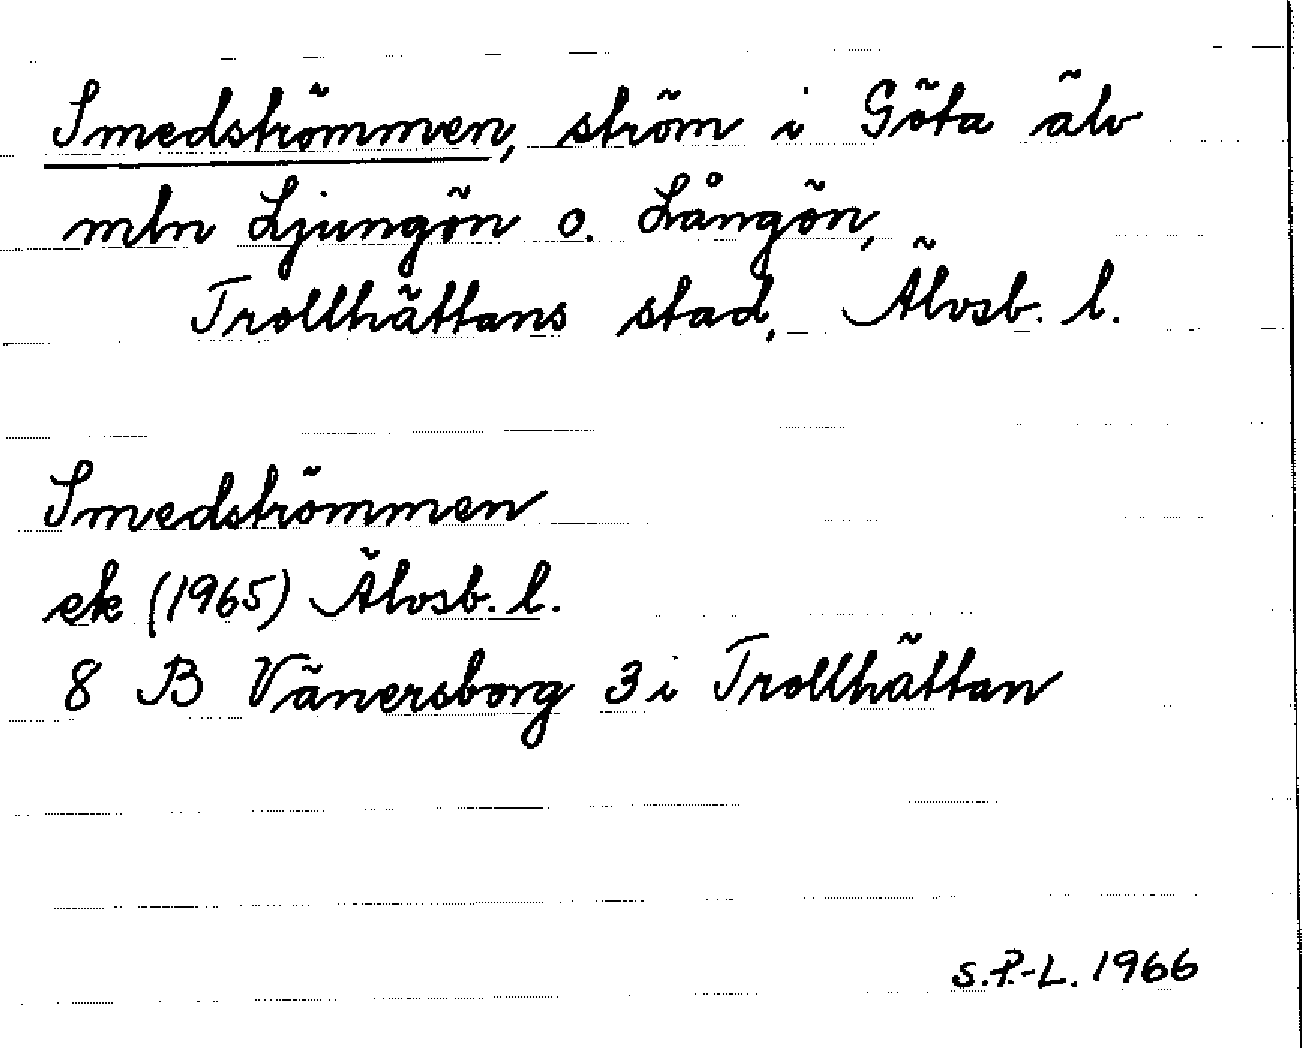 Smedströmmen, ström i Göta älv
mln Ljungön o. Långön,
Trollhättans stad, Älvsb. l.
Smedströmmen
ek (1965) Älvsb. l.
8 B Vänersborg 3 i Trollhättan
S.P.-L. 1966